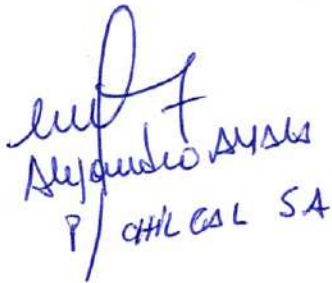 Alejandro Ayala
P/ CHILCAL SA